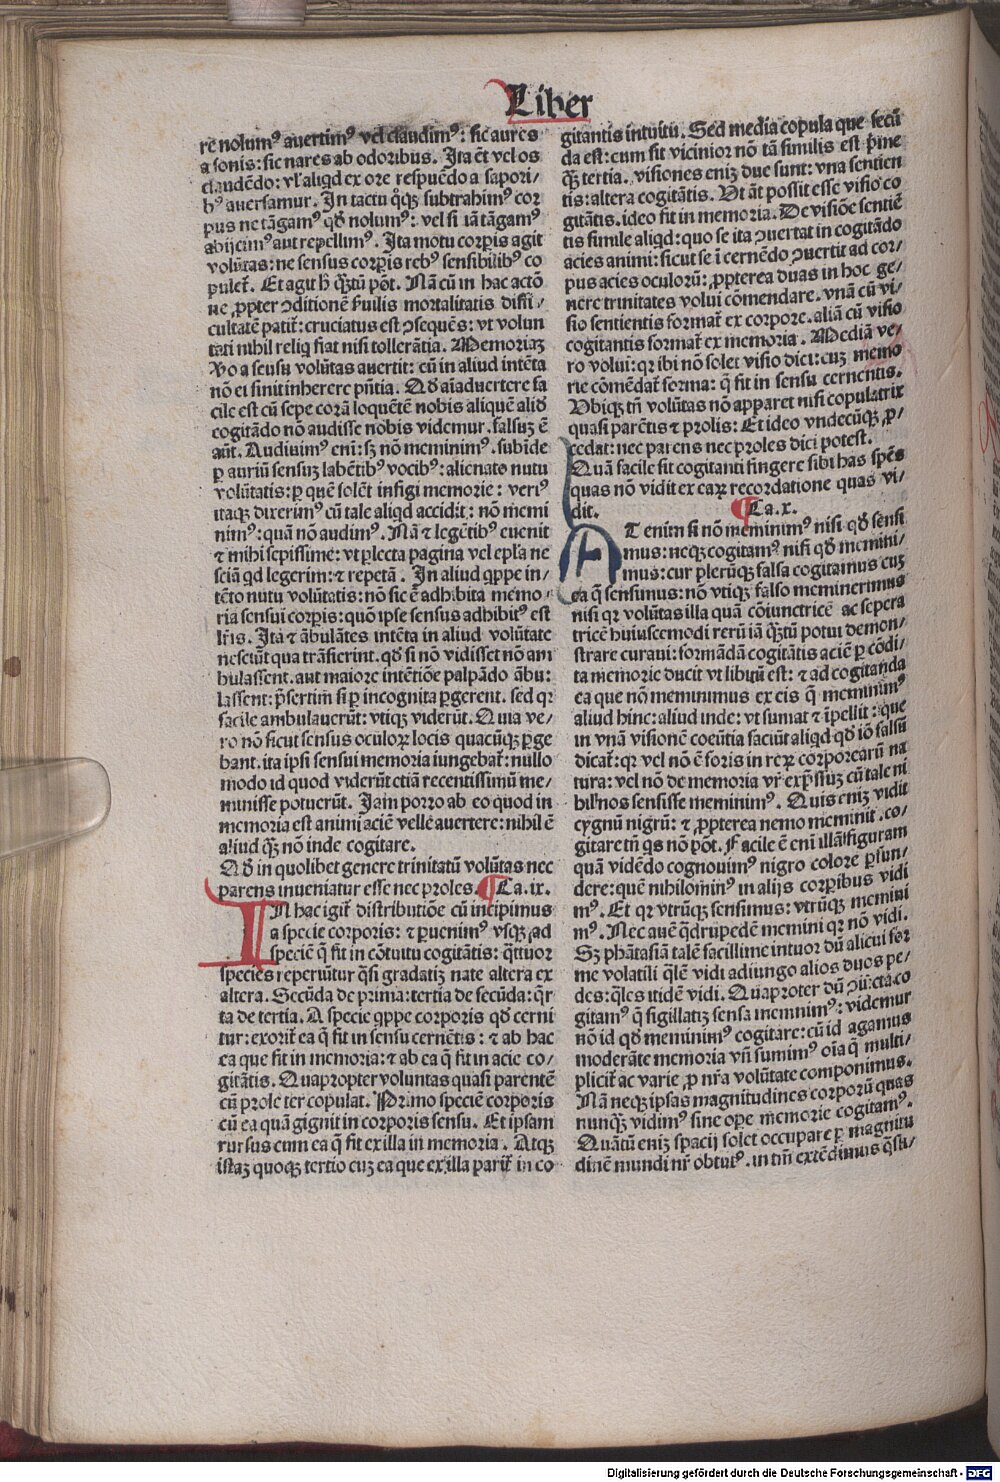 Liber
re nolumꝰ auertimꝰ vel claudimꝰ: sic aures
a sonis: sic nares ab odoribus. Ita et̄ vel os
claudēdo: vl' aliqd ex ore respuēdo a sapori/
bꝰ auersamur. In tactu qͦqꝫ subtrahimꝰ cor
pus ne tāgamꝰ qd̄ nolumꝰ: vel si iā tāgamꝰ
abijcimꝰ aut repellimꝰ. Ita motu corꝑis agit
volūtas: ne sensus corꝑis rebꝰ sensibilibꝰ co
pulet̄. Et agit h̄ qꝫtū pōt. Nā cū in hac actō
ne ꝓpter ↄditionē ẜuilis mortalitatis diffi/
cultatē patit̄: cruciatus est ↄsequēs: vt volun
tati nihil reliq fiat nisi tollerātia. Memoriaꝫ
ꝟo a sensu volūtas auertit: cū in aliud intēta
nō ei sinit inherere pn̄tia. Qd̄ aīaduertere fa
cile est cū sepe corā loquētē nobis aliquē alid̄
cogitādo nō audisse nobis videmur. falsuꝫ ē
aūt. Audiuimꝰ eni: sꝫ nō meminimꝰ. subīde
ꝑ auriū sensuꝫ labētibꝰ vocibꝰ: alienato nutu
volūtatis: ꝑ quē solēt infigi memorie: veriꝰ
itaqꝫ dixerimꝰ cū tale aliqd accidit: nō memi
nimꝰ: quā nō audimꝰ. Nā ⁊ legētibꝰ euenit
⁊ mihi sepissime: vt ꝑlecta pagina vel epl'a ne
sciā qd legerim: ⁊ repetā. In aliud qppe in/
tēto nutu volūtatis: nō sic ē adhibita memo/
ria sensui corꝑis: quō ipse sensus adhibitꝰ est
lr̄is. Ita ⁊ ābulātes intēta in aliud volūtate
nesciūt qua trāsierint. qd̄ si nō vidisset nō am
bulassent. aut maiore intētiōe palpādo ābu/
lassent: p̄sertim si ꝑ incognita ꝑgerent. sed qr
facile ambulauerūt: vtiqꝫ viderūt. Quia ve/
ro nō sicut sensus oculoꝝ locis quacūqꝫ ꝑge
bant. ita ipsi sensui memoria iungebat̄: nullo
modo id quod viderūt etiā recentissimū me/
minisse potuerūt. Iam porro ab eo quod in
memoria est animi aciē velle auertere: nihil ē
aliud qꝫ nō inde cogitare.
Qd̄ in quolibet genere trinitatū volūtas nec
parens inueniatur esse nec proles. ¶Ca. ix.
IN hac igit̄ distributiōe cū incipimus
a specie corporis: ⁊ ꝑuenimꝰ vsqꝫ ad
speciē q̄ fit in cōtuitu cogitātis: q̄ttuor
species reperiūtur q̄si gradatiꝫ nate altera ex
altera. Secūda de prima: tertia de secūda: q̄r
ta de tertia. A specie qppe corporis qd̄ cerni
tur: exorit̄ ea q̄ fit in sensu cernētis: ⁊ ab hac
ea que fit in memoria: ⁊ ab ea q̄ fit in acie co/
gitātis. Quapropter voluntas quasi parentē
cū prole ter copulat. Primo speciē corporis
cū ea quā gignit in corporis sensu. Et ipsam
rursus cum ea q̄ fit ex illa in memoria. Atqꝫ
istaꝫ quoqꝫ tertio cuꝫ ea que ex illa parit̄ in co
gitantis intuitu. Sed media copula que secū
da est: cum sit vicinior nō tā similis est p̄me
qꝫ tertia. visiones eniꝫ due sunt: vna sentien
tis: altera cogitātis. Vt āt possit esse visio co
gitātis. ideo fit in memoria. De visiōe sentiē
tis simile aliqd: quo se ita ↄuertat in cogitādo
acies animi: sicut se ī cernēdo ↄuertit ad cor/
pus acies oculorū: ꝓpterea duas in hoc ge/
nere trinitates volui cōmendare. vnā cū vi/
sio sentientis format̄ ex corpore. aliā cū visio
cogitantis format̄ ex memoria. Mediā ve/
ro volui: qr ibi nō solet visio dici: cuꝫ memo
rie cōmēdat̄ forma: q̄ fit in sensu cernentis.
Vbiqꝫ tn̄ volūtas nō apparet nisi copulatrix
quasi parētis ⁊ prolis: Et ideo vndecūqꝫ ꝓ/
cedat: nec parens nec proles dici potest.
Quā facile sit cogitanti fingere sibi has spēs
quas nō vidit ex eaꝝ recordatione quas vi/
dit. ¶Ca. x.
AT enim si nō meminimꝰ nisi qd̄ sensi
mus: neqꝫ cogitamꝰ nisi qd̄ memini/
mus: cur plerūqꝫ falsa cogitamus cuꝫ
ea q̄ sensimus: nō vtiqꝫ falso meminerimus
nisi qr volūtas illa quā cōiunctricē ac sepera
tricē huiuscemodi rerū iā qꝫtū potui demon/
strare curaui: formādā cogitātis aciē ꝑ cōdi/
ta memorie ducit vt libitū est: ⁊ ad cogitanda
ea que nō meminimus ex eis q̄ meminimꝰ
aliud hinc: aliud inde: vt sumat ⁊ īpellit: que
in vnā visionē coeūtia faciūt aliqd qd̄ iō falsū
dicat̄: qr vel nō ē foris in reꝝ corporearū na
tura: vel nō de memoria vr̄ exp̄ssuꝫ cū tale ni
hil nos sensisse meminimꝰ. Quis eniꝫ vidit
cygnū nigrū: ⁊ ꝓpterea nemo meminit. co/
gitare tn̄ qs nō pōt. Facile ē eni illā figuram
quā vidēdo cognouimꝰ nigro colore ꝑfun/
dere: quē nihilomin̄ꝰ in alijs corꝑibus vidi
mꝰ. Et qr vtrūqꝫ sensimus: vtrūqꝫ memini
mꝰ. Nec auē q̄drupedē memini qr nō vidi.
Sꝫ phātasiā talē facillime intuor dū alicui for
me volatili q̄lē vidi adiungo alios duos pe/
des: q̄les itidē vidi. Quaproter dū ↄiūcta co
gitamꝰ q̄ sigillatiꝫ sensa meminimꝰ: videmur
nō id qd̄ meminimꝰ cogitare: cū id agamus
moderāte memoria vn̄ sumimꝰ oīa q̄ multi/
pliciť ac varie ꝓ nr̄a volūtate componimus.
Nā neqꝫ ipsas magnitudines corporū quas
nunqꝫ vidimꝰ sine ope memorie cogitamꝰ.
Quātū eniꝫ spacij solet occupare ꝑ magnitu
dinē mundi nr̄ obtutꝰ. in tm̄ extēdimus q̄sli/
Digitalisierung gefördert durch die Deutsche Forschungsgemeinschaft - DFG